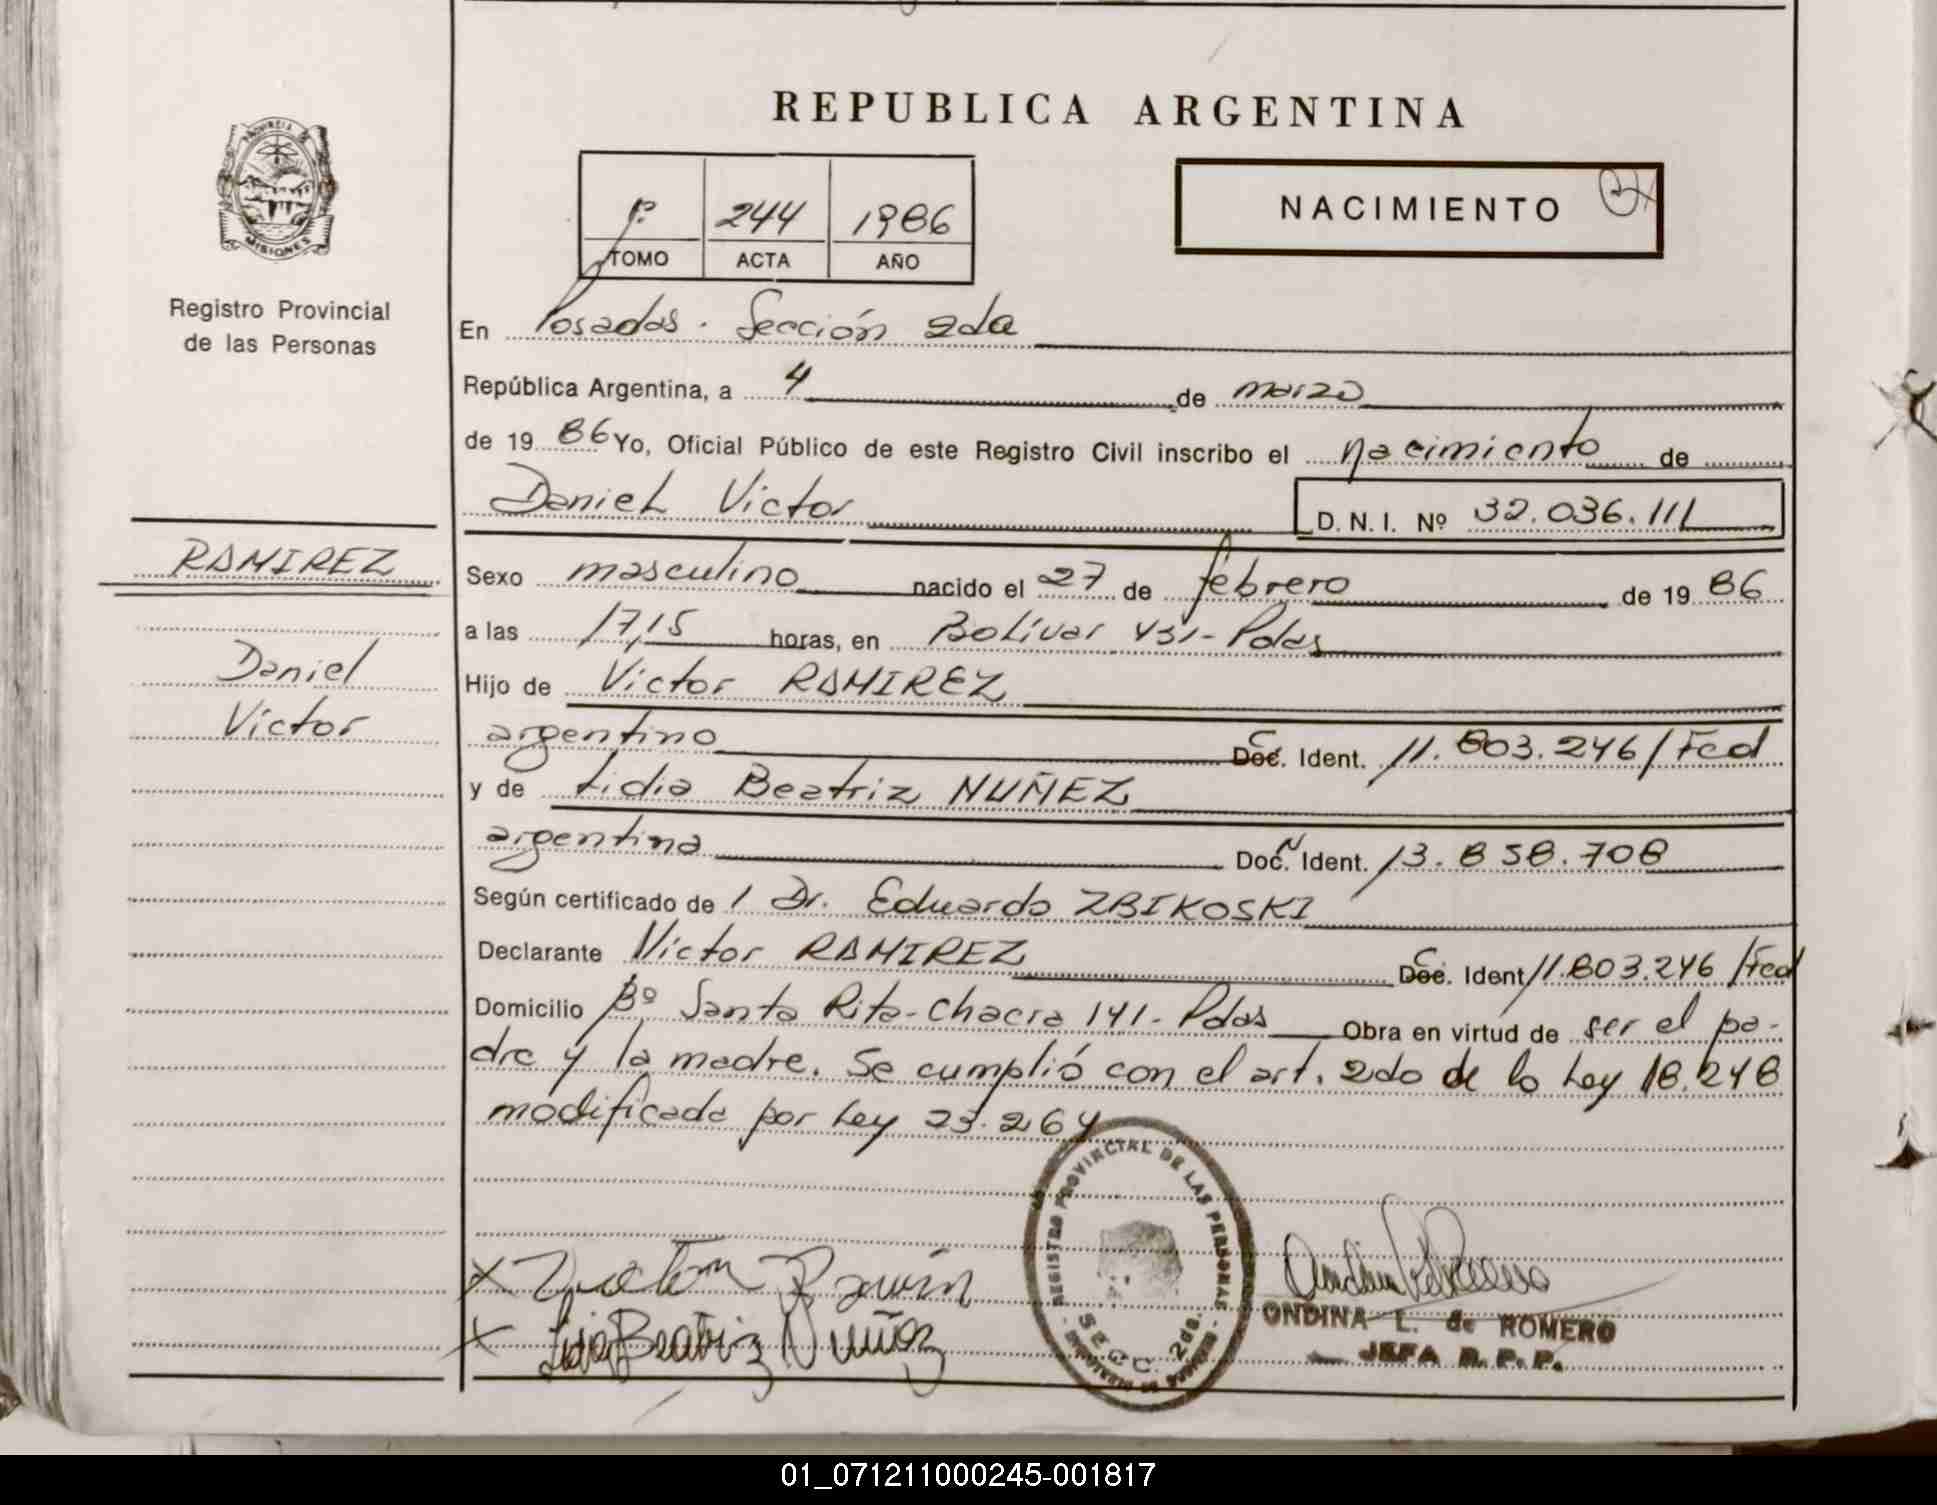 REPUBLICA ARGENTINA
PROVINCIA DE
MISIONES
Registro Provincial
de las Personas
1º 244 1986
TOMO ACTA AÑO
NACIMIENTO
En Posadas. Sección 2da
República Argentina, a 4 de marzo
de 1986 Yo, Oficial Público de este Registro Civil inscribo el nacimiento de
Daniel Victor D.N.I. Nº 32.036.111
RAMIREZ
Daniel
Victor
Sexo masculino nacido el 27 de febrero de 1986
a las 17,15 horas, en Bolívar 431- Pdas
Hijo de Victor RAMIREZ
argentino Doc. Ident. 11.803.246/Fed
y de Lidia Beatriz NUÑEZ
argentina Doc. Ident. 13.858.708
Según certificado de 1 Dr. Eduardo ZBIKOSKI
Declarante Victor RAMIREZ Doc. Ident 11.803.246/Fed
Domicilio Bº Santa Rita-Chacra 141- Pdas Obra en virtud de ser el pa-
dre y la madre. Se cumplió con el art. 2do de la Ley 18.248
modificada por Ley 23.264
REGISTRO PROVINCIAL DE LAS PERSONAS
SECC. 2da.
Lidia Beatriz Nuñez
ONDINA L. de ROMERO
JEFA R.P.P.
01_071211000245-001817